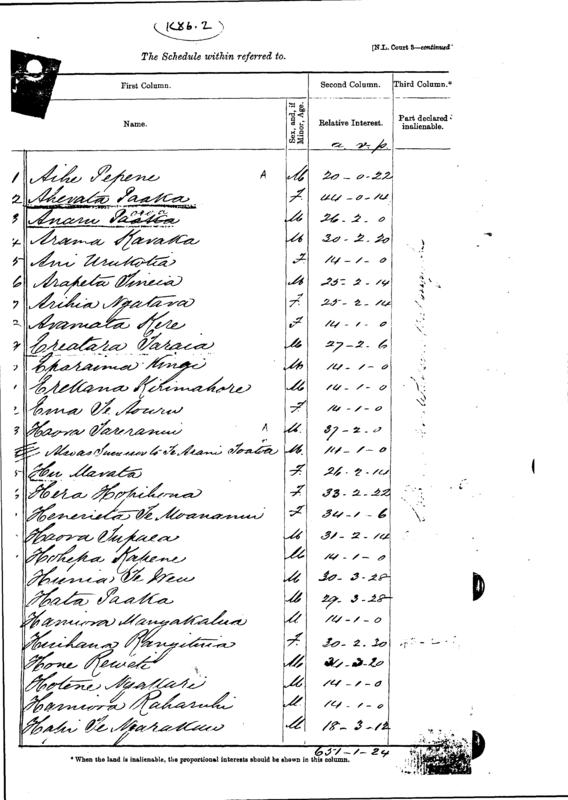 K86.2
[N.L. Court 5—continued
The Schedule within referred to.
First Column. Second Column. Third Column.*
Name. Sex, and, if Minor, Age. Relative Interest. Part declared inalienable.
a. r. p.
1 Aihe Pepene A M 20-0-22
2 Ahevata Paaka F. 44-0-14
3 Anaru Paaka M 26-2-0
4 Arama Karaka M 30-2-20
5 Ani Urukotia F 14-1-0
6 Arapeta Tineia M 25-2-14
7 Arihia Ngatava F. 25-2-14
Avamata Kere F 14-1-0
Ereatara Taraia M 27-2-6
Eparaima Kingi M 14-1-0
Erekana Kirimahore M 14-1-0
Ema Te Aouru F 14-1-0
3 Haora Tareranui A M. 37-2-0
Successor to Te Arani M. 14-1-0
5 Hu Mavata F. 26-2-14
Hera Hopihona F. 33-2-22
Henerieta Te Moananui F 34-1-6
Haora Tupaea M 31-2-14
Hohepa Kapene M 14-1-0
Hunia Te Weu M 30-3-28
Hata Paaka M 29-3-28
Hamiora Mangakahia M 14-1-0
Huihana Rangituia F. 30-2-30
Hone Rewati M 21-3-20
Hotene Ngakuri M 14-1-0
Hamiora Raharuhi M 14-1-0
Hapi Te Ngarukau M 18-3-12
651-1-24
* When the land is inalienable, the proportional interests should be shown in this column.